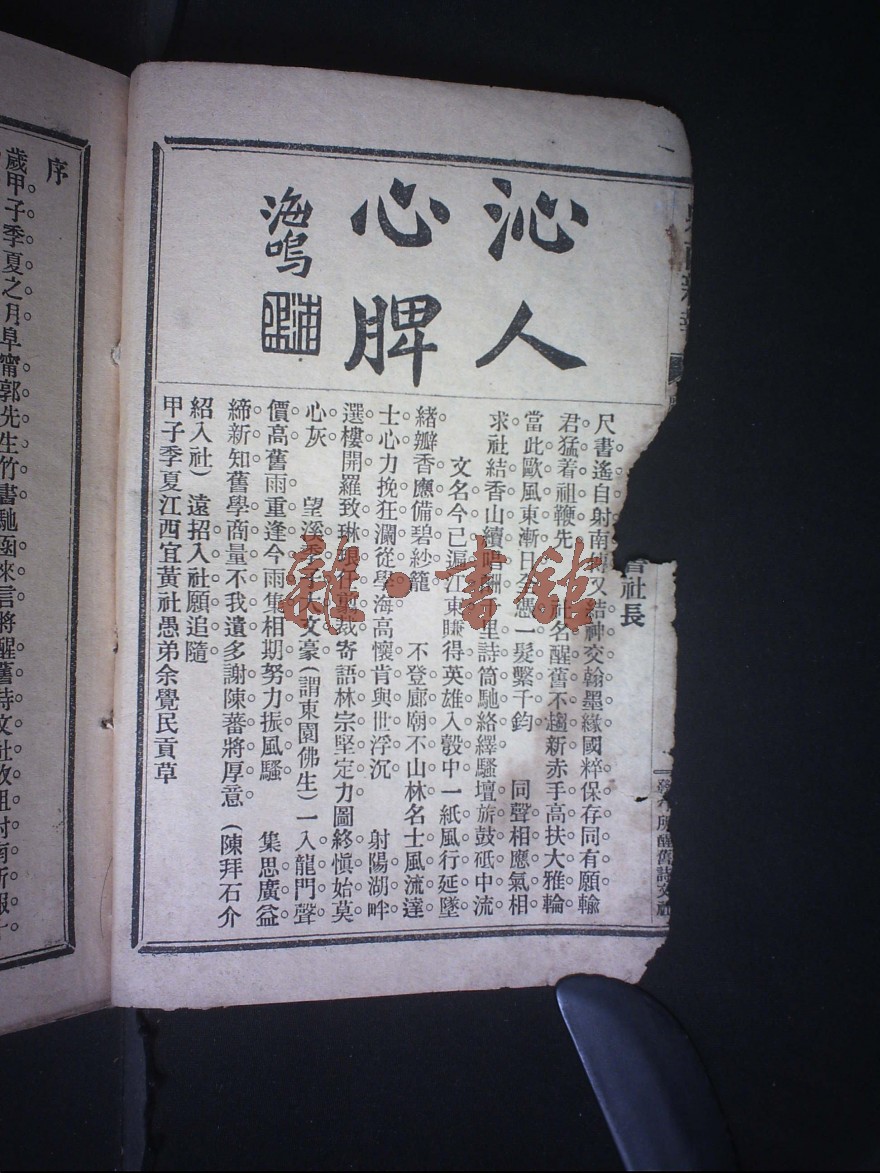 沁人
心脾
海鳴
社長
尺書遙自射南
又結神交翰墨緣國粹保存同有願輸
君猛着祖鞭先　社名醒舊不趨新赤手高扶大雅輪
當此歐風東漸日全憑一髮繫千鈞　同聲相應氣相
求社結香山續唱酬
里詩筒馳絡繹騷壇旂鼓砥中流
文名今已漏江東賺得英雄入彀中一紙風行延墜
緒瓣香應備碧紗籠　不登廊廟不山林名士風流達
士心力挽狂瀾從學海高懷肯與世浮沉　射陽湖畔
選樓開羅致琳瑯任剪裁寄語林宗堅定力圖終慎始莫
心灰　望溪季子大文豪（謂東園佛生）一入龍門聲
價高舊雨重逢今雨集相期努力振風騷　集思廣益
締新知舊學商量不我遺多謝陳蕃將厚意（陳拜石介
紹入社）遠招入社願追隨
甲子季夏江西宜黃社愚弟余覺民貢草
序
歲甲子季夏之月阜甯郭先生竹書馳函來言將醒舊詩文社
雜·書館